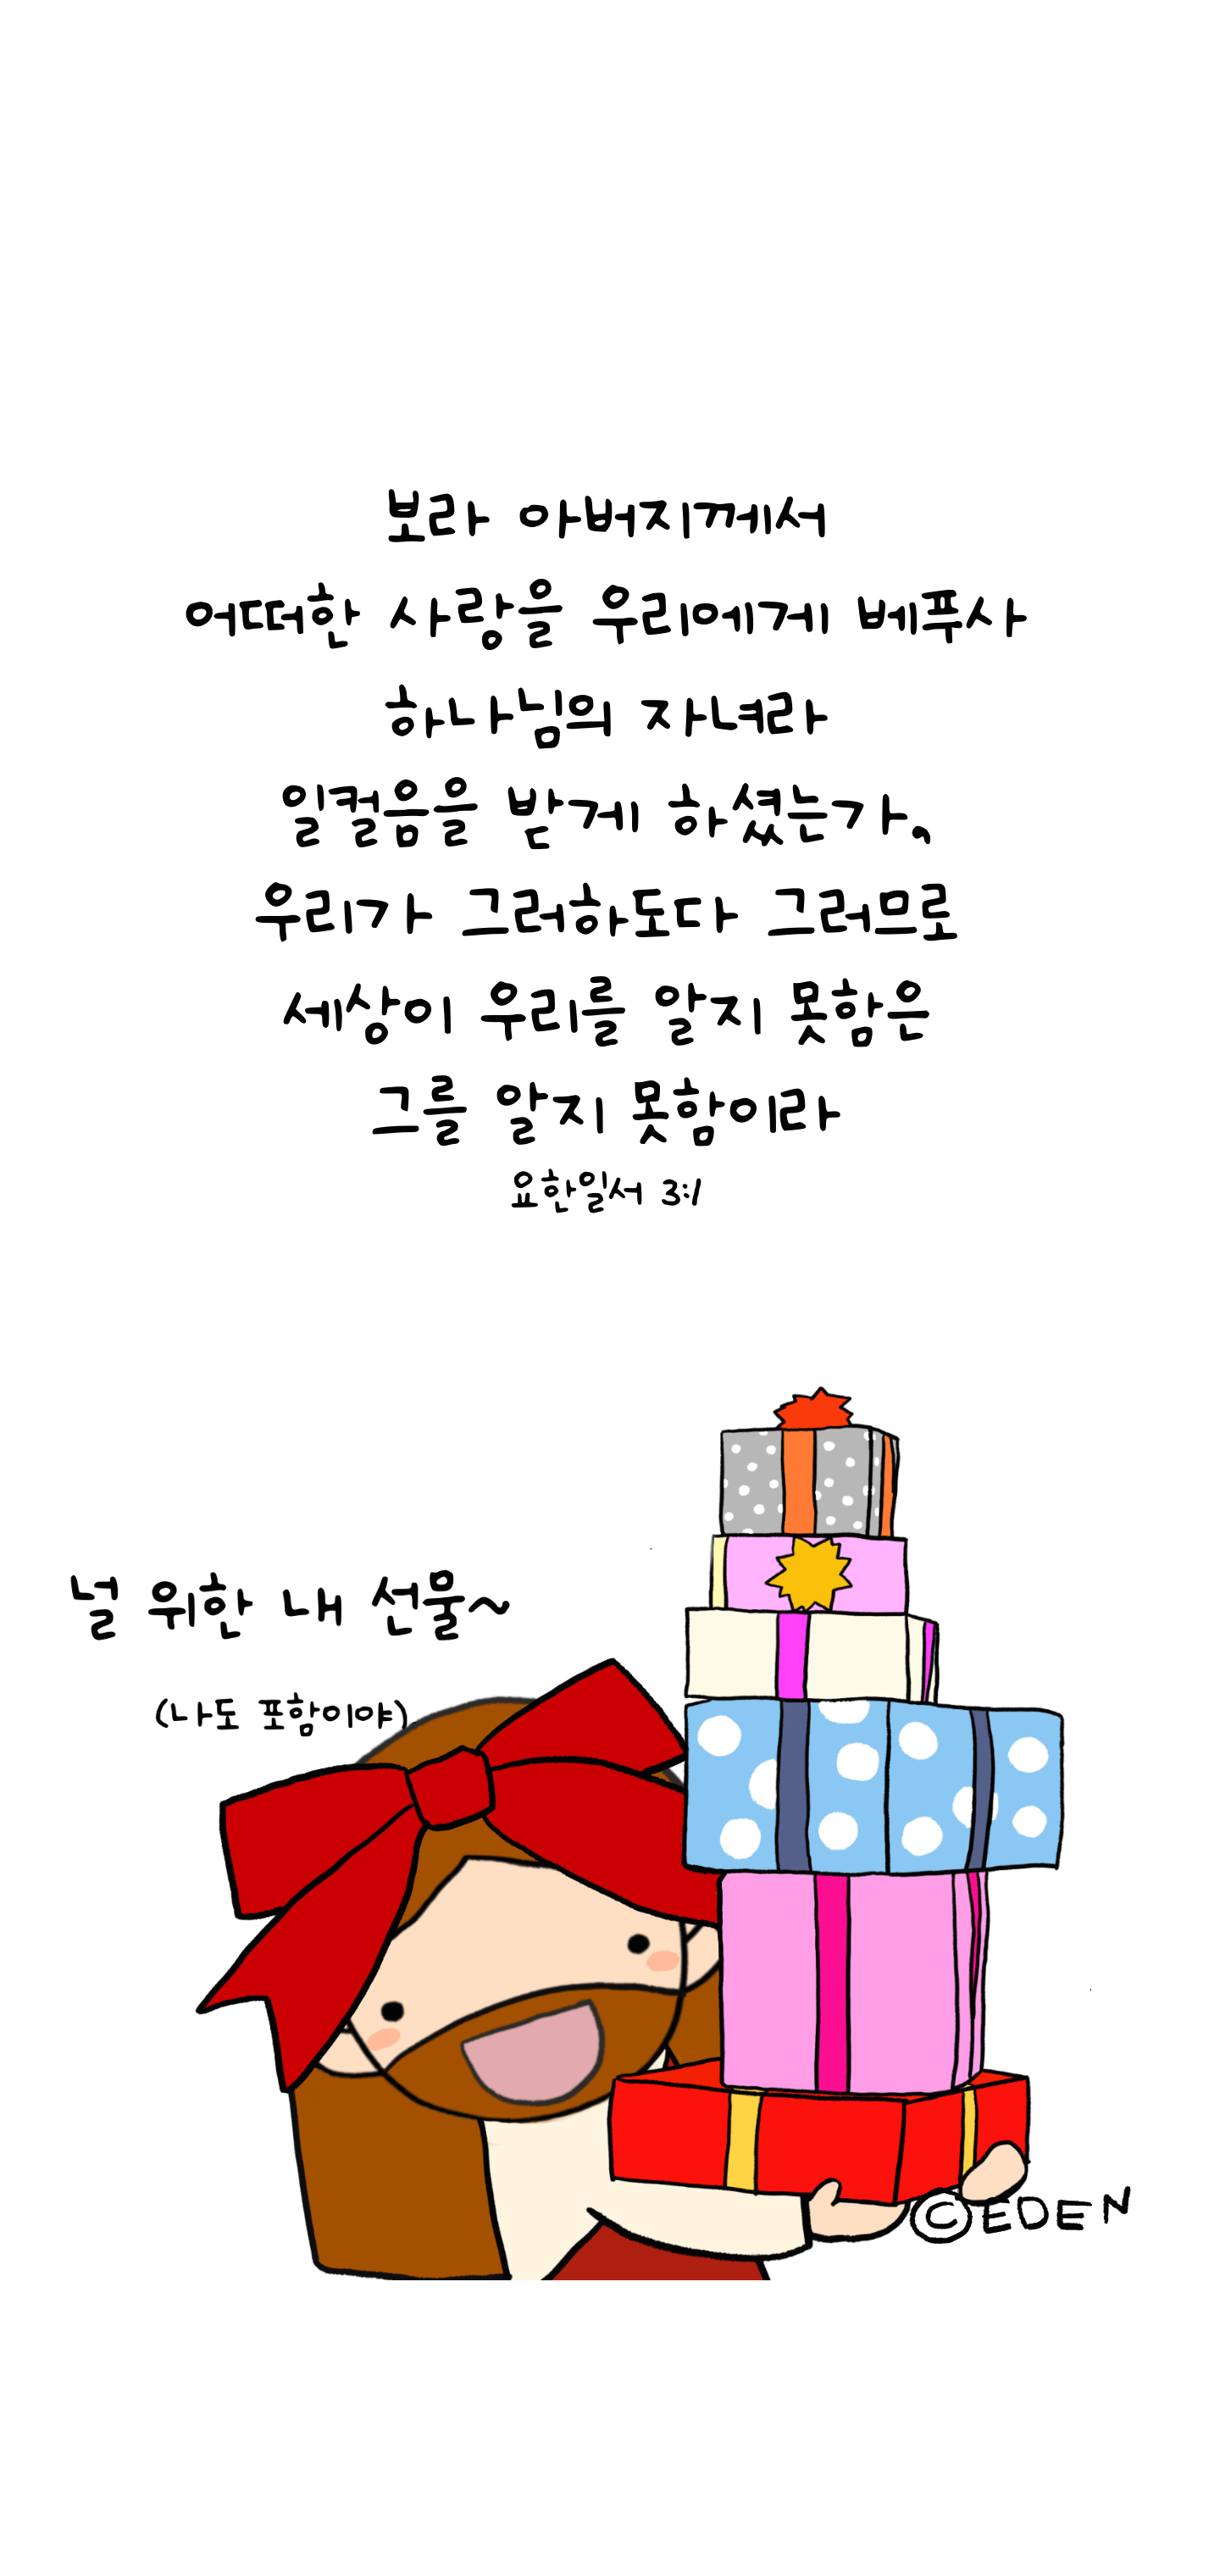 보라 아버지께서
어떠한 사랑을 우리에게 베푸사
하나님의 자녀라
일컬음을 받게 하셨는가,
우리가 그러하도다 그러므로
세상이 우리를 알지 못함은
그를 알지 못함이라
요한일서 3:1
널 위한 내 선물~
(나도 포함이야)
©EDEN